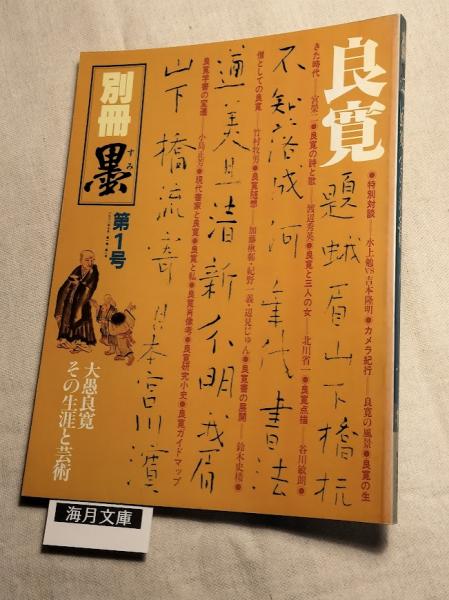 良寛
●特別対談——水上勉vs吉本隆明●カメラ紀行——良寛の風景●良寛の生
きた時代——宮栄二●良寛の詩と歌——渡辺秀英●良寛と三人の女——北川省一●良寛点描——谷川敏朗●
僧としての良寛——竹村牧男●良寛随想——加藤楸邨・紀野一義・辺見じゅん●良寛書の展開——鈴木史楼●
良寛学書の変遷——小島正芳●現代書家と良寛●良寛と私●良寛肖像考●良寛研究小史●良寛ガイドマップ
題蛾眉山下橋杭
不知落成何年代書法
遒美且清新分明我眉
山下橋流寄日本宮川濱
別冊
墨
すみ
第1号
大愚良寛
その生涯と芸術
海月文庫